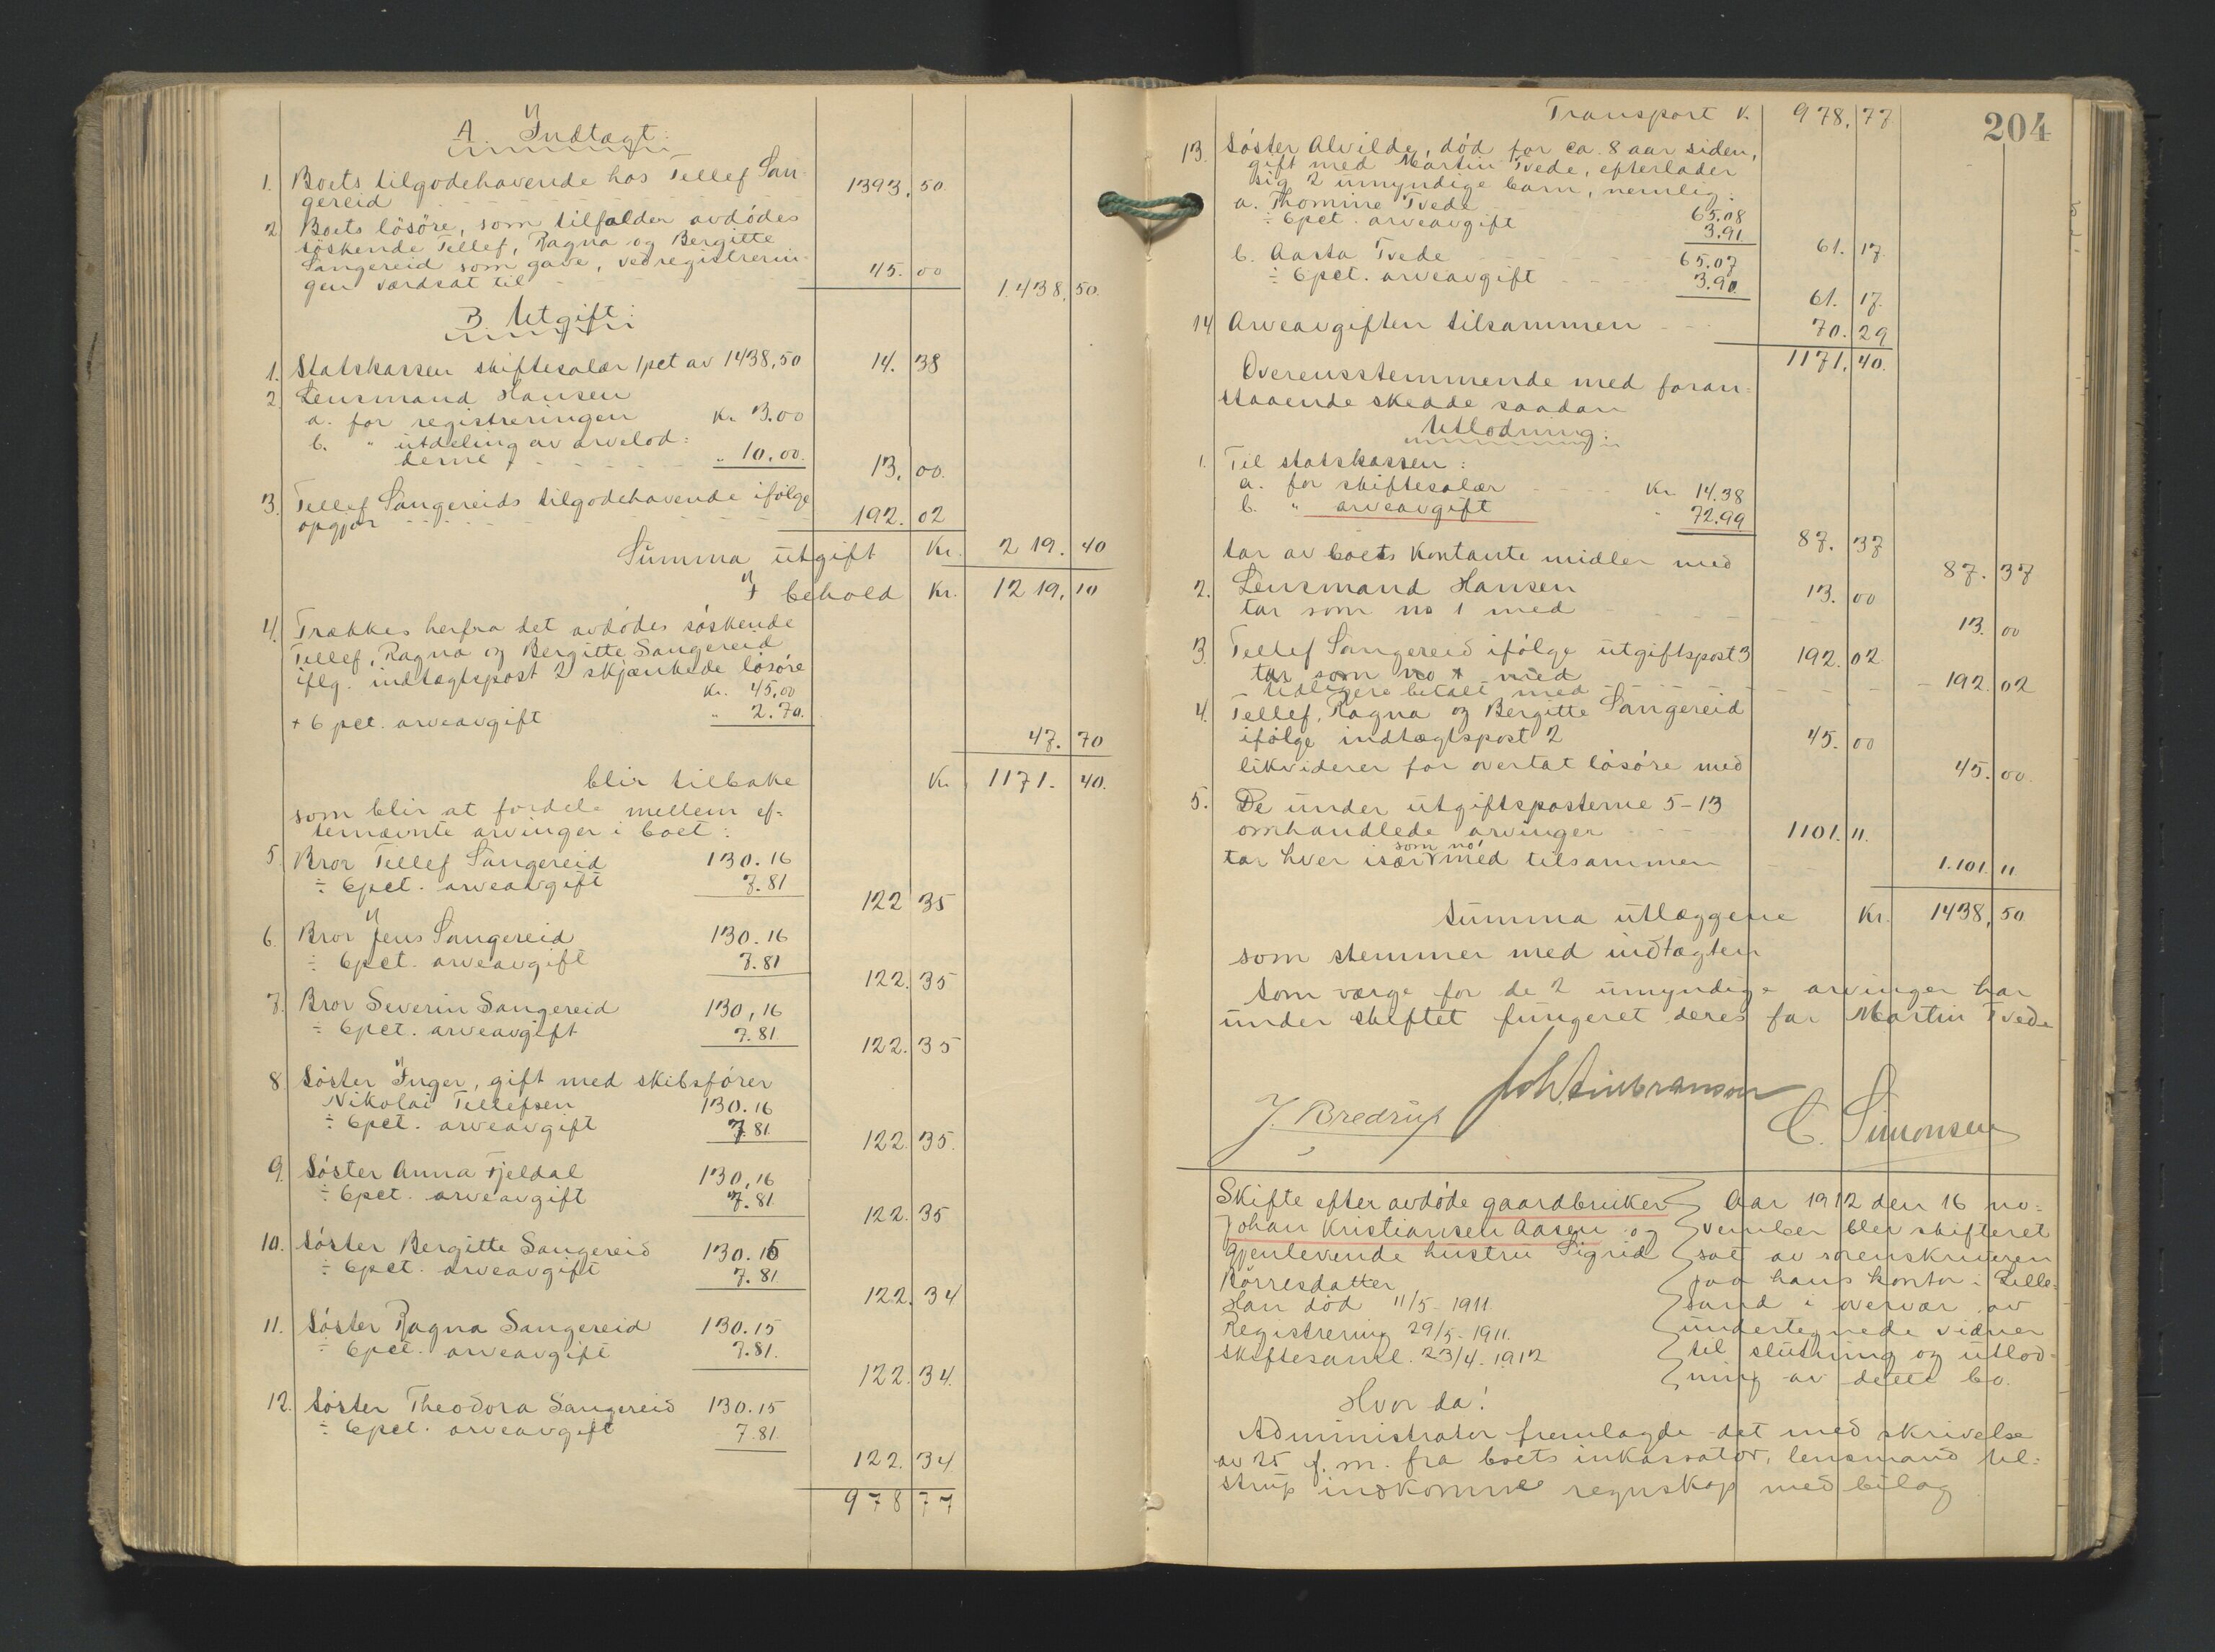 A. Indtægt:
1. Boets tilgodehavende hos Tellef San-
gereid 1393,50.
2. Boets lösöre, som tilfalder avdödes
söskende Tellef, Ragna og Bergitte
Sangereid som gave, ved registrerin-
gen værdsat til 45.00
1.438,50.
B. Utgift:
1. Statskassen skiftesalær 1pct av 1438,50 14.38
2. Lensmand Hansen
a. for registreringen Kr. 3.00
b. " utdeling av arvelod:
derne " 10.00. 13.00.
3. Tellef Sangereids tilgodehavende ifölge
opgjør 192.02
Summa utgift Kr. 219.40
I behold Kr. 1219,10
4. Trækkes herfra det avdödes söskende
Tellef, Ragna og Bergitte Sangereid
iflg. indtægtspost 2 skjænkede lösöre
Kr. 45,00
+ 6 pct. arveavgift " 2.70.
47.70
blir tilbake Kr. 1171.40.
som blir at fordele mellem ef-
ternævnte arvinger i boet:
5. Bror Tellef Sangereid 130.16
÷ 6pct. arveavgift 7.81
122 35
6. Bror Jens Sangereid 130.16
÷ 6pct. arveavgift 7.81
122.35
7. Bror Severin Sangereid 130,16
÷ 6pct. arveavgift 7.81
122.35
8. Söster Inger, gift med skibsförer
Nikolai Tellefsen 130.16
÷ 6pct. arveavgift 7.81
122.35.
9. Söster Anna Fjeldal 130,16
÷ 6pct. arveavgift 7.81
122.35
10. Söster Bergitte Sangereid 130.15
÷ 6pct. arveavgift 7.81
122.34
11. Söster Ragna Sangereid 130.15
÷ 6pct. arveavgift 7.81.
122.34.
12. Söster Theodora Sangereid 130.15
÷ 6pct. arveavgift 7.81
122.34
978 77
204
Transport K. 978,77
13. Söster Alvilde, död for ca. 8 aar siden,
gift med Martin Tvede, efterlader
sig 2 umyndige barn, nemlig:
a. Thomine Tvede 65.08
÷ 6pct. arveavgift 3.91.
61.17.
b. Aasta Tvede 65.07
÷ 6pct. arveavgift 3.90.
61.17.
14. Arveavgiften tilsammen 70.29
1171,40.
Overensstemmende med foran-
staaende skedde saadan
Utlodning:
1. Til statskassen:
a. for skiftesalær Kr. 14.38
b. " arveavgift " 72.99
87.37
tar av boets kontante midler med 87.37
2. Lensmand Hansen 13.00
tar som no 1 med 13.00
3. Tellef Sangereid ifölge utgiftspost 3 192.02.
tar som no 1 med
tidligere betalt med 192.02
4. Tellef, Ragna og Bergitte Sangereid
ifölge indtægtspost 2 45.00
likviderer for overtat lösöre med 45.00.
5. De under utgiftsposterne 5-13
omhandlede arvinger 1101.11.
tar hver især som no 1 med tilsammen 1.101.11
Summa utlæggene Kr. 1438,50
som stemmer med indtægten
Som værge for de 2 umyndige arvinger har
under skiftet fungeret deres far Martin Tvede
J. Bredrup
C. Simonsen
Skifte efter avdöde gaardbruker
Johan Kristiansen Aasen og
gjenlevende hustru Sigrid
Börresdatter
Han död 11/5-1911
Registrering 29/5-1911.
Skiftesaml. 23/4.1912
Aar 1912 den 16 no-
vember blev skifteret
sat av sorenskriveren
paa hans kontor i Lille-
sand i overvær av
undertegnede vidner
til slutning og utlod-
ning av dette bo.
Hvor da!
Administrator fremlagde det med skrivelse
av 25 f.m. fra boets inkassator, lensmand Ul-
strup indkomne regnskap med bilag